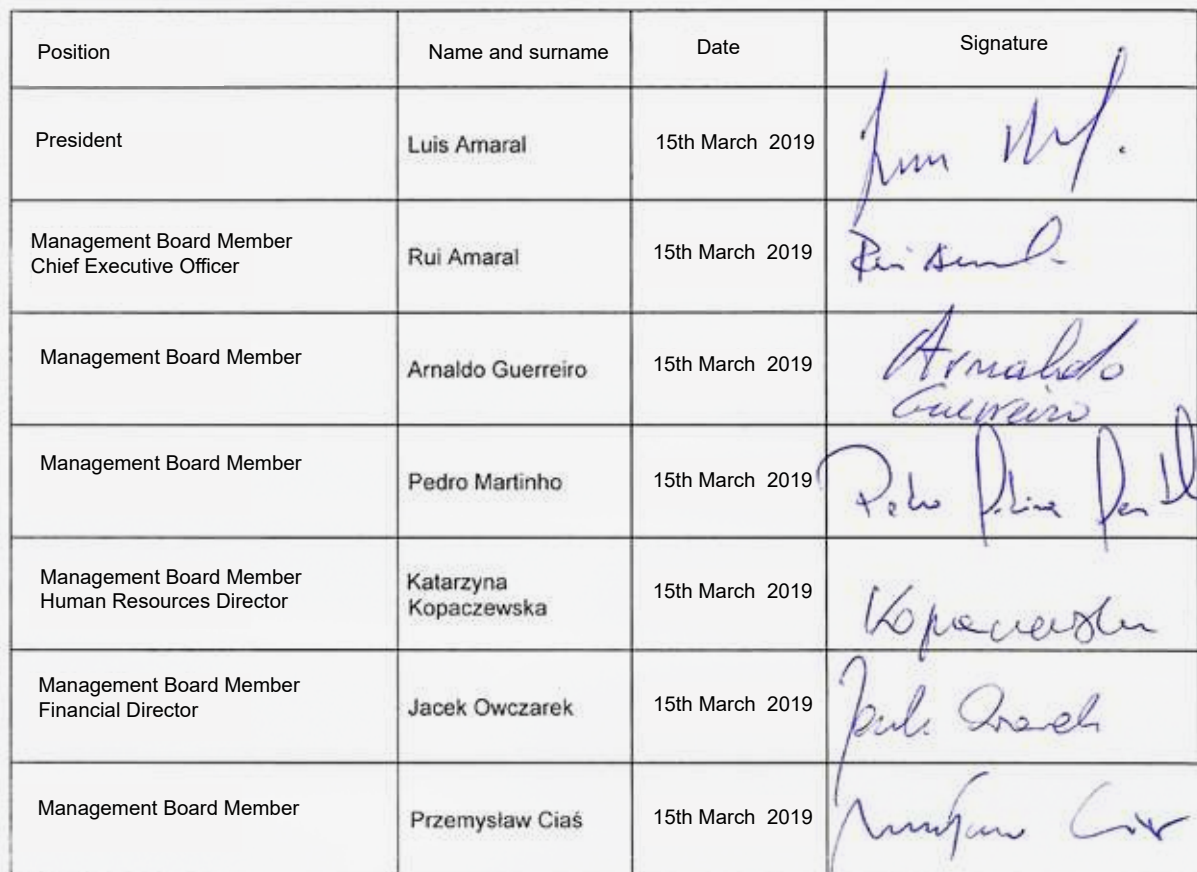 Position Name and surname Date Signature
President Luis Amaral 15th March 2019
Management Board Member
Chief Executive Officer Rui Amaral 15th March 2019
Management Board Member Arnaldo Guerreiro 15th March 2019 Arnaldo
Guerreiro
Management Board Member Pedro Martinho 15th March 2019 Pedro
Management Board Member
Human Resources Director
Katarzyna
Kopaczewska
15th March 2019 Kopaczewska
Management Board Member
Financial Director Jacek Owczarek 15th March 2019
Management Board Member Przemysław Ciaś 15th March 2019